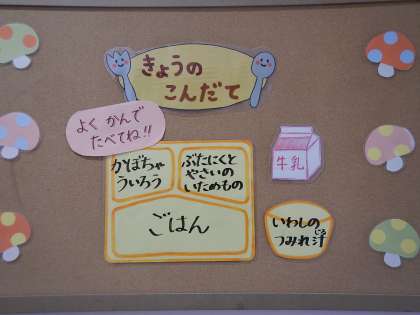 きょうの
こんだて
よく かんで
たべてね!!
かぼちゃ
ういろう
ぶたにくと
やさいの
いためもの
牛乳
ごはん
いわしの
つみれ汁
じる